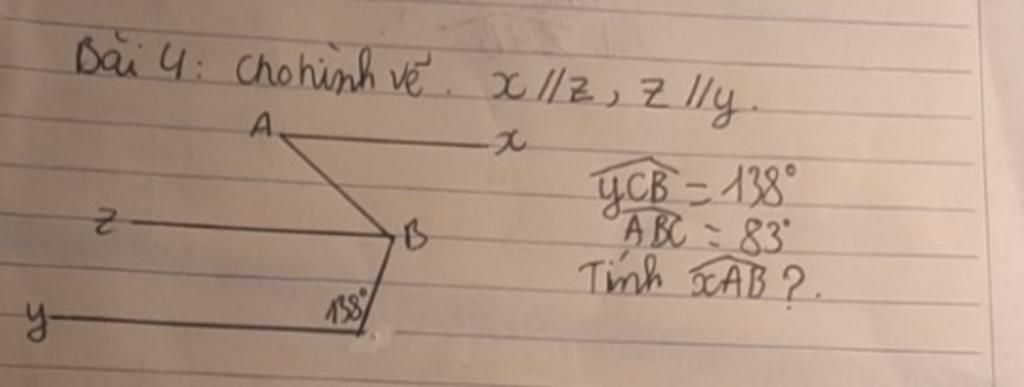 Bài 4: Cho hình vẽ. x // z, z // y.
A
x
yCB = 138°
z
B
ABC = 83°
Tính xAB ?.
138°
y